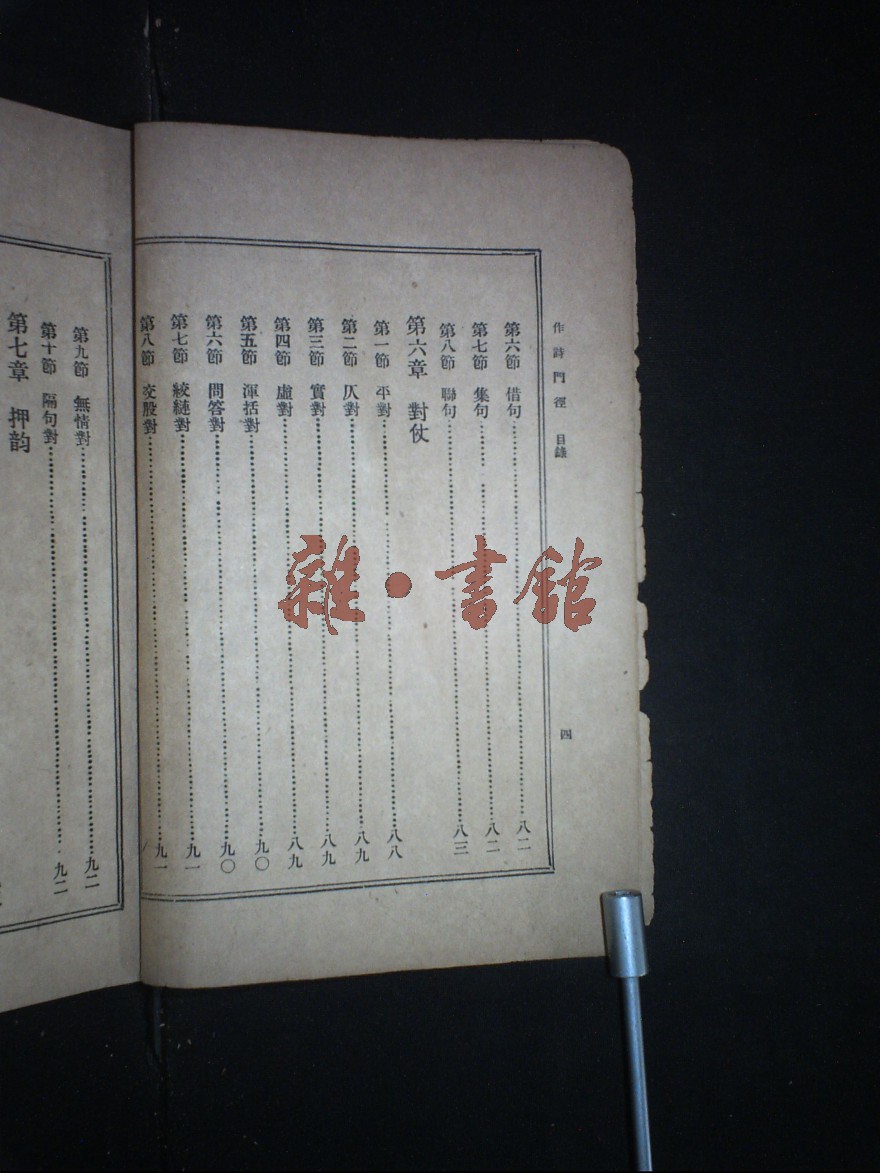 作詩門徑 目錄 四
第六節 借句 八二
第七節 集句 八二
第八節 聯句 八三
第六章 對仗
第一節 平對 八八
第二節 仄對 八九
第三節 實對 八九
第四節 虛對 八九
第五節 渾括對 九〇
第六節 問答對 九〇
第七節 絞縺對 九一
第八節 交股對 九一
第九節 無情對 九二
第十節 隔句對 九二
第七章 押韵
雜·書館